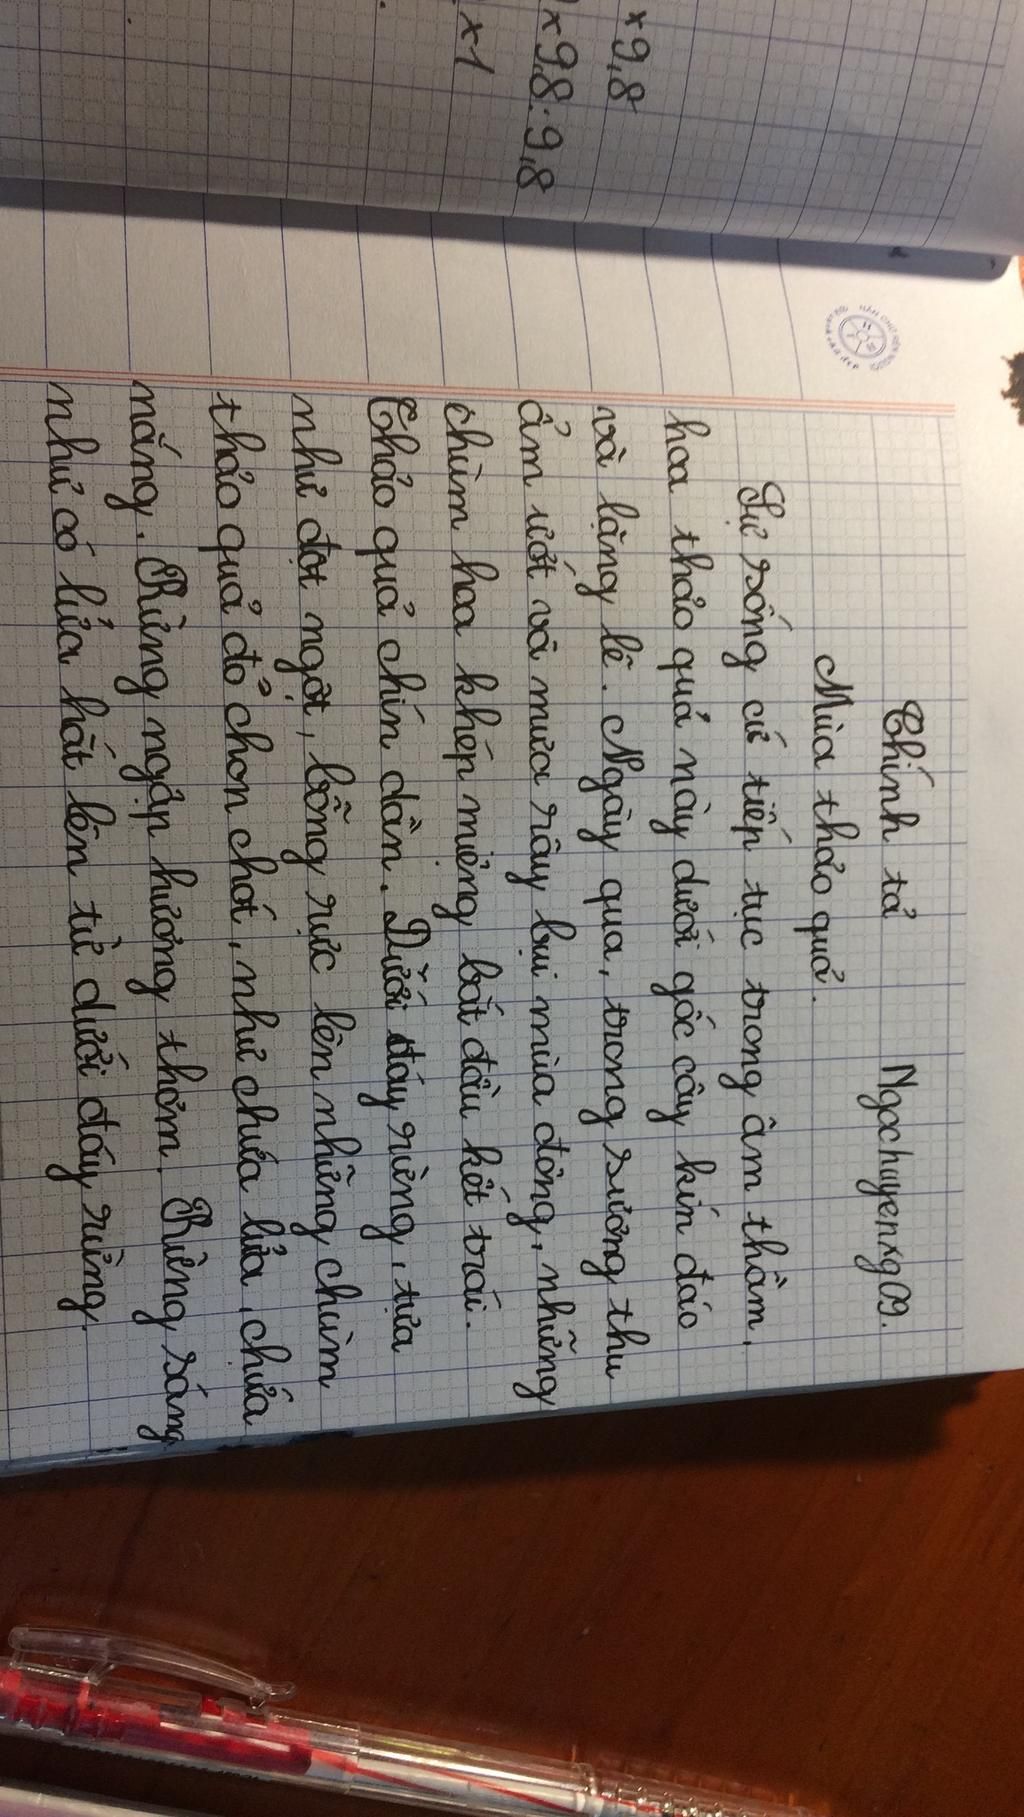 x 9,8
x 9,8 : 9,8
x 1
Chính tả
Ngochuyenxg09.
Mùa thảo quả.
Sự sống cứ tiếp tục trong âm thầm,
hoa thảo quả nảy dưới gốc cây kín đáo
và lặng lẽ. Ngày qua, trong sương thu
ẩm ướt và mưa rây bụi mùa đông, những
chùm hoa khép miệng bắt đầu kết trái.
Thảo quả chín dần. Dưới đáy rừng, tựa
như đột ngột, bỗng rực lên những chùm
thảo quả đỏ chon chót, như chứa lửa, chứa
nắng. Rừng ngập hương thơm. Rừng sáng
như có lửa hắt lên từ dưới đáy rừng.